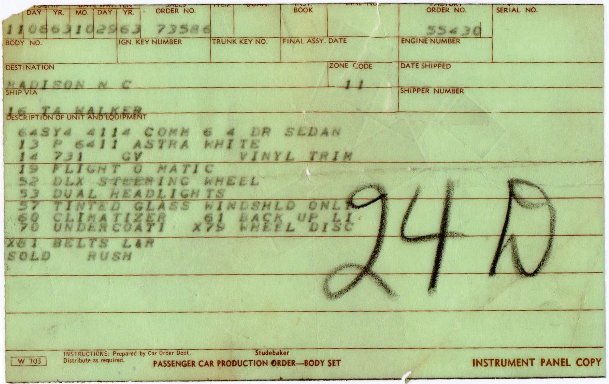 DAY YR. MO. DAY YR. ORDER NO. BOOK ORDER NO. SERIAL NO.
110663102963 73586 55430
BODY NO. IGN. KEY NUMBER TRUNK KEY NO. FINAL ASSY. DATE ENGINE NUMBER
DESTINATION ZONE CODE DATE SHIPPED
MADISON N C 11
SHIP VIA SHIPPER NUMBER
16 TA WALKER
DESCRIPTION OF UNIT AND EQUIPMENT
64SY4 4114 COMM 6 4 DR SEDAN
13 P 6411 ASTRA WHITE
14 731 GV VINYL TRIM
19 FLIGHT O MATIC
52 DLX STEERING WHEEL
53 DUAL HEADLIGHTS
57 TINTED GLASS WINDSHLD ONLY
60 CLIMATIZER 61 BACK UP LI
70 UNDERCOATI X79 WHEEL DISC
X61 BELTS L&R
SOLD RUSH
24 D
W 703
INSTRUCTIONS: Prepared by Car Order Dept.
Distribute as required.
Studebaker
PASSENGER CAR PRODUCTION ORDER—BODY SET
INSTRUMENT PANEL COPY